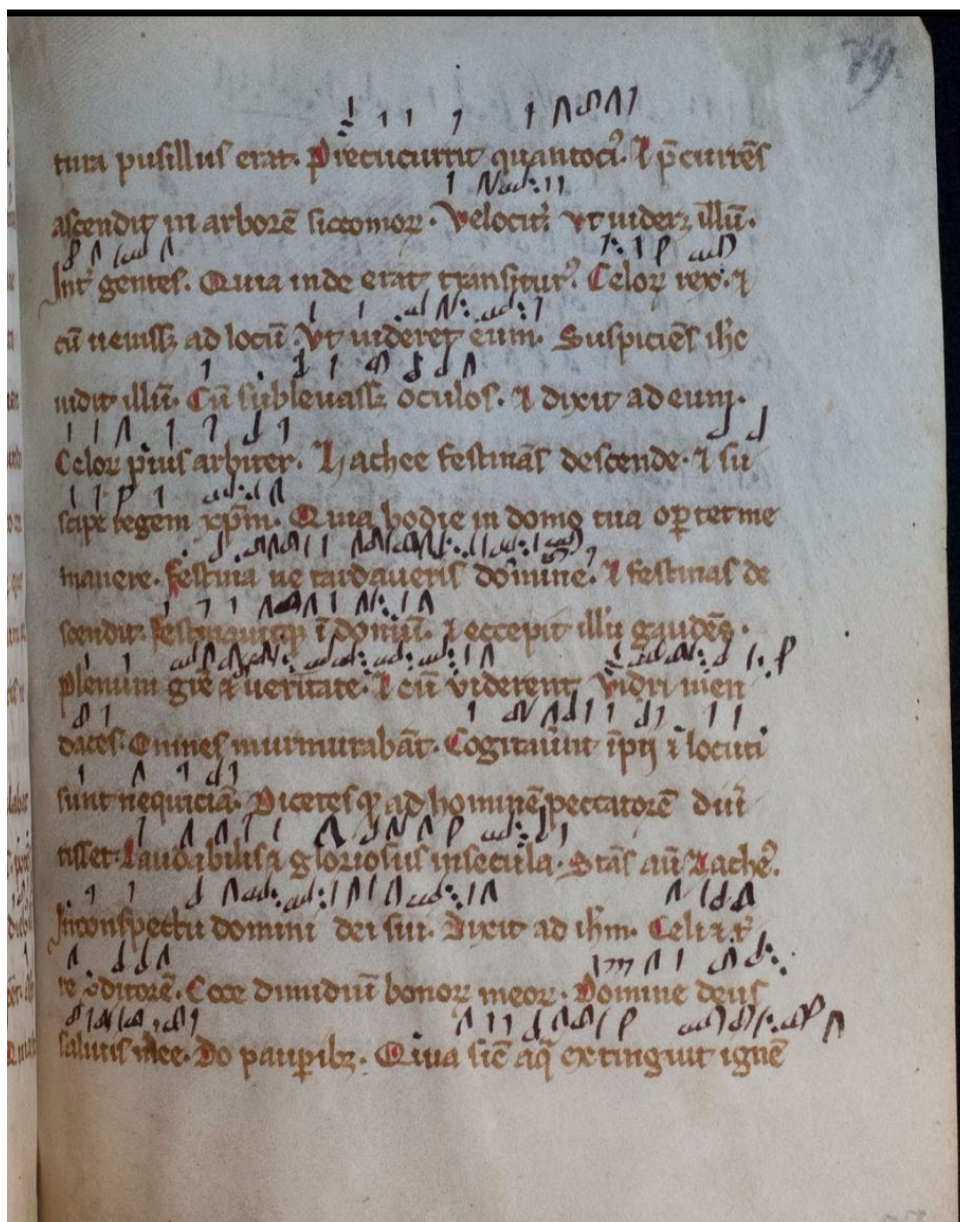 79.
tura pusillus erat. Precucurrit quantoci᾿. Ɛ p̄currēs
ascendit in arborē siccomoꝝ. Velocit᾿. vt uideꝫ illū.
Int᾿ gentes. Quia inde erat transitur᾿. Celoꝝ rex. ⁊
cū uenissꝫ ad locū. Vt uideret eum. Suspiciēs ih̄c
uidit illū. Cū subleuassꝫ oculos. ⁊ dixit ad eum.
Celoꝝ pius arbiter. Zachee festinās descende. ⁊ su
scipe regem xp̄m. Quia hodie in domo tua oꝑtet me
manere. Festina ne tardaueris domine. ⁊ festinas de
scendit. in domū. ⁊ eccepit illū gaudēs.
plenum grē ⁊ ueritate. ⁊ cū viderent. Vidri men
daces. Omnes murmurabāt. Cogitauͤnt īpij ⁊ locuti
sunt nequiciā. Dicetes ꝙ ad hominē peccatorē diu᾿
tisset. Laudabilis ⁊ gloriosus insecula. Stās aū Zache᾿.
Inconspectu domini dei sui. Dixit ad ih̄m. Celi ⁊ t᾿
re ditorē. Ecce dimidiū bonoꝝ meoꝝ. Domine deus
salutis mee. Do pauꝑibꝫ. Quia siē aq̄ extinguit ignē